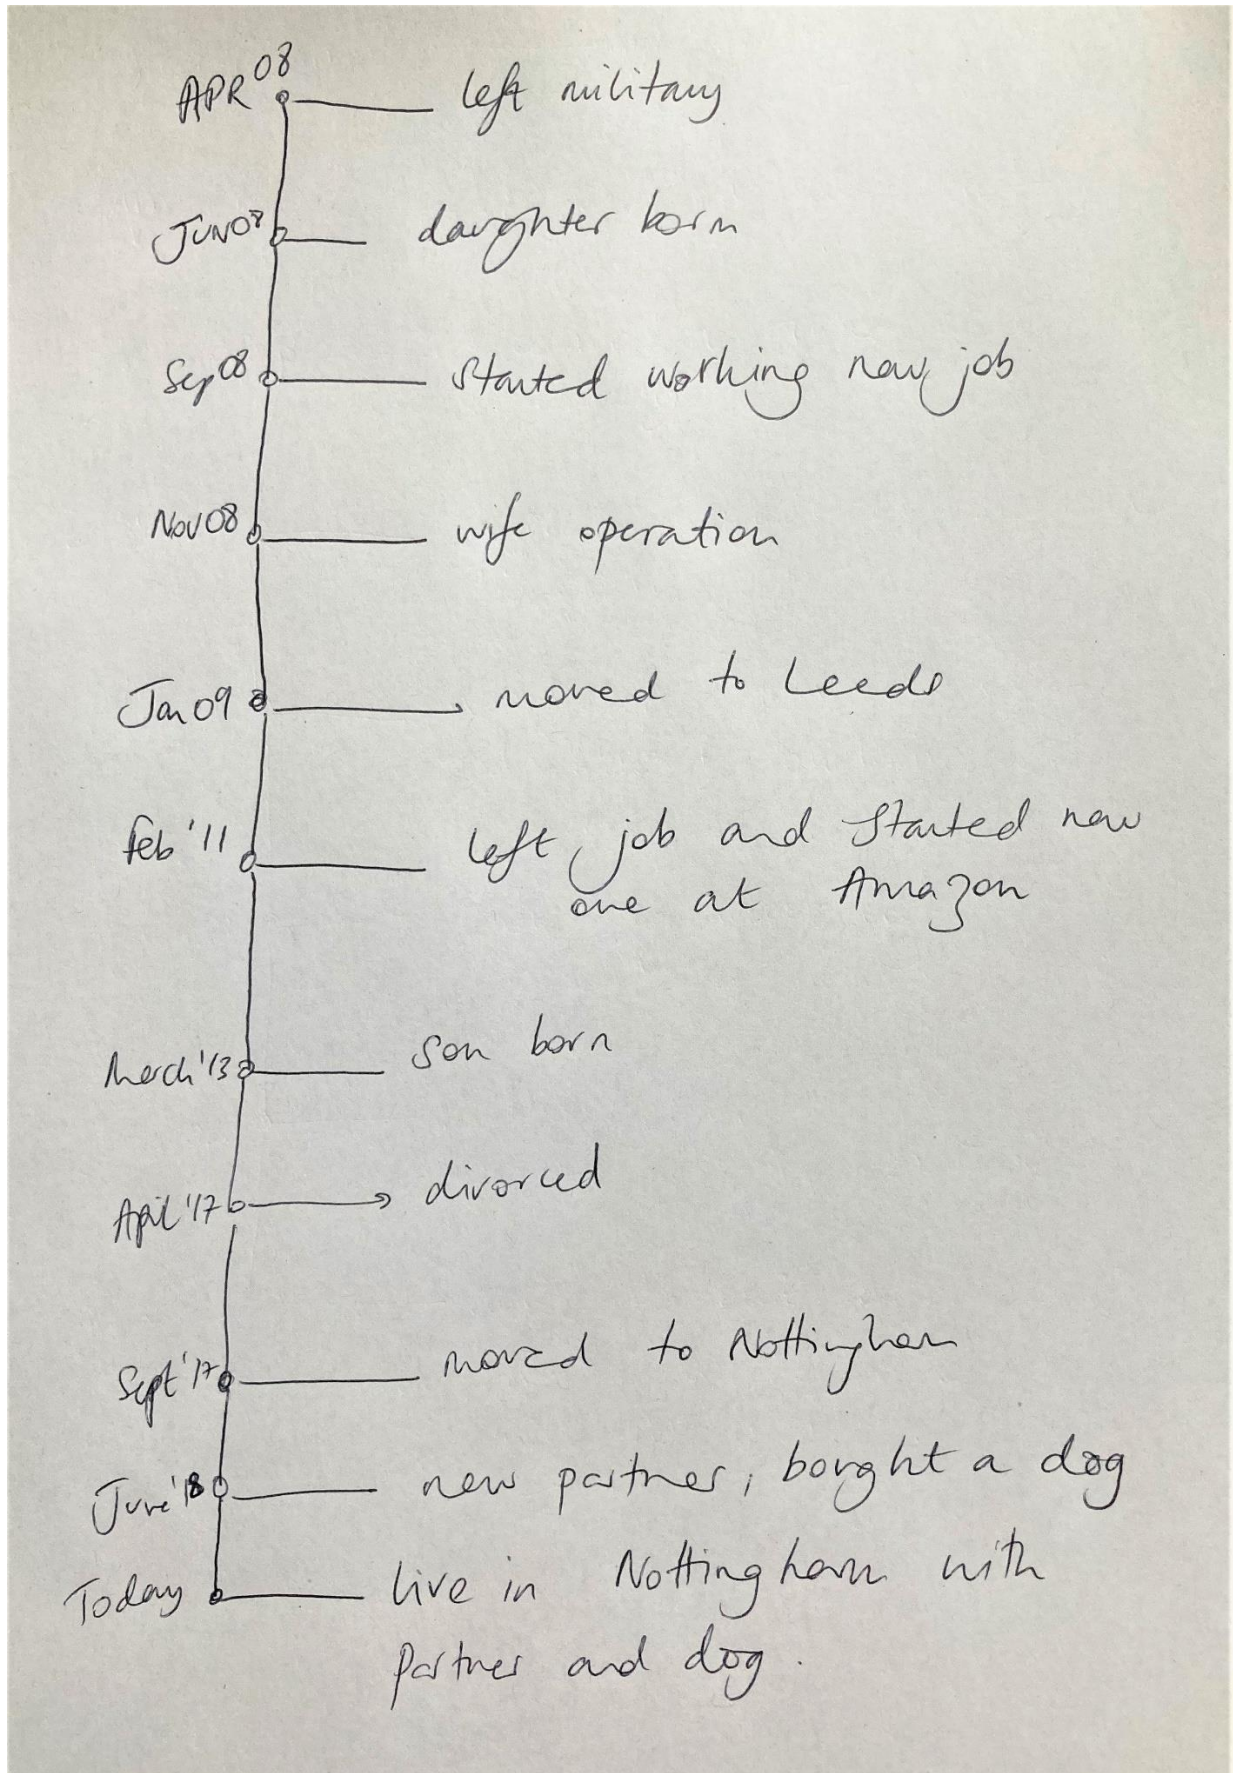 APR 08 left military
JUN 08 daughter born
Sep 08 Started working new job
Nov 08 wife operation
Jan 09 moved to Leeds
Feb '11 left job and started new
one at Amazon
March '13 son born
April '17 divorced
Sept '17 moved to Nottingham
June '18 new partner, bought a dog
Today live in Nottingham with
partner and dog.